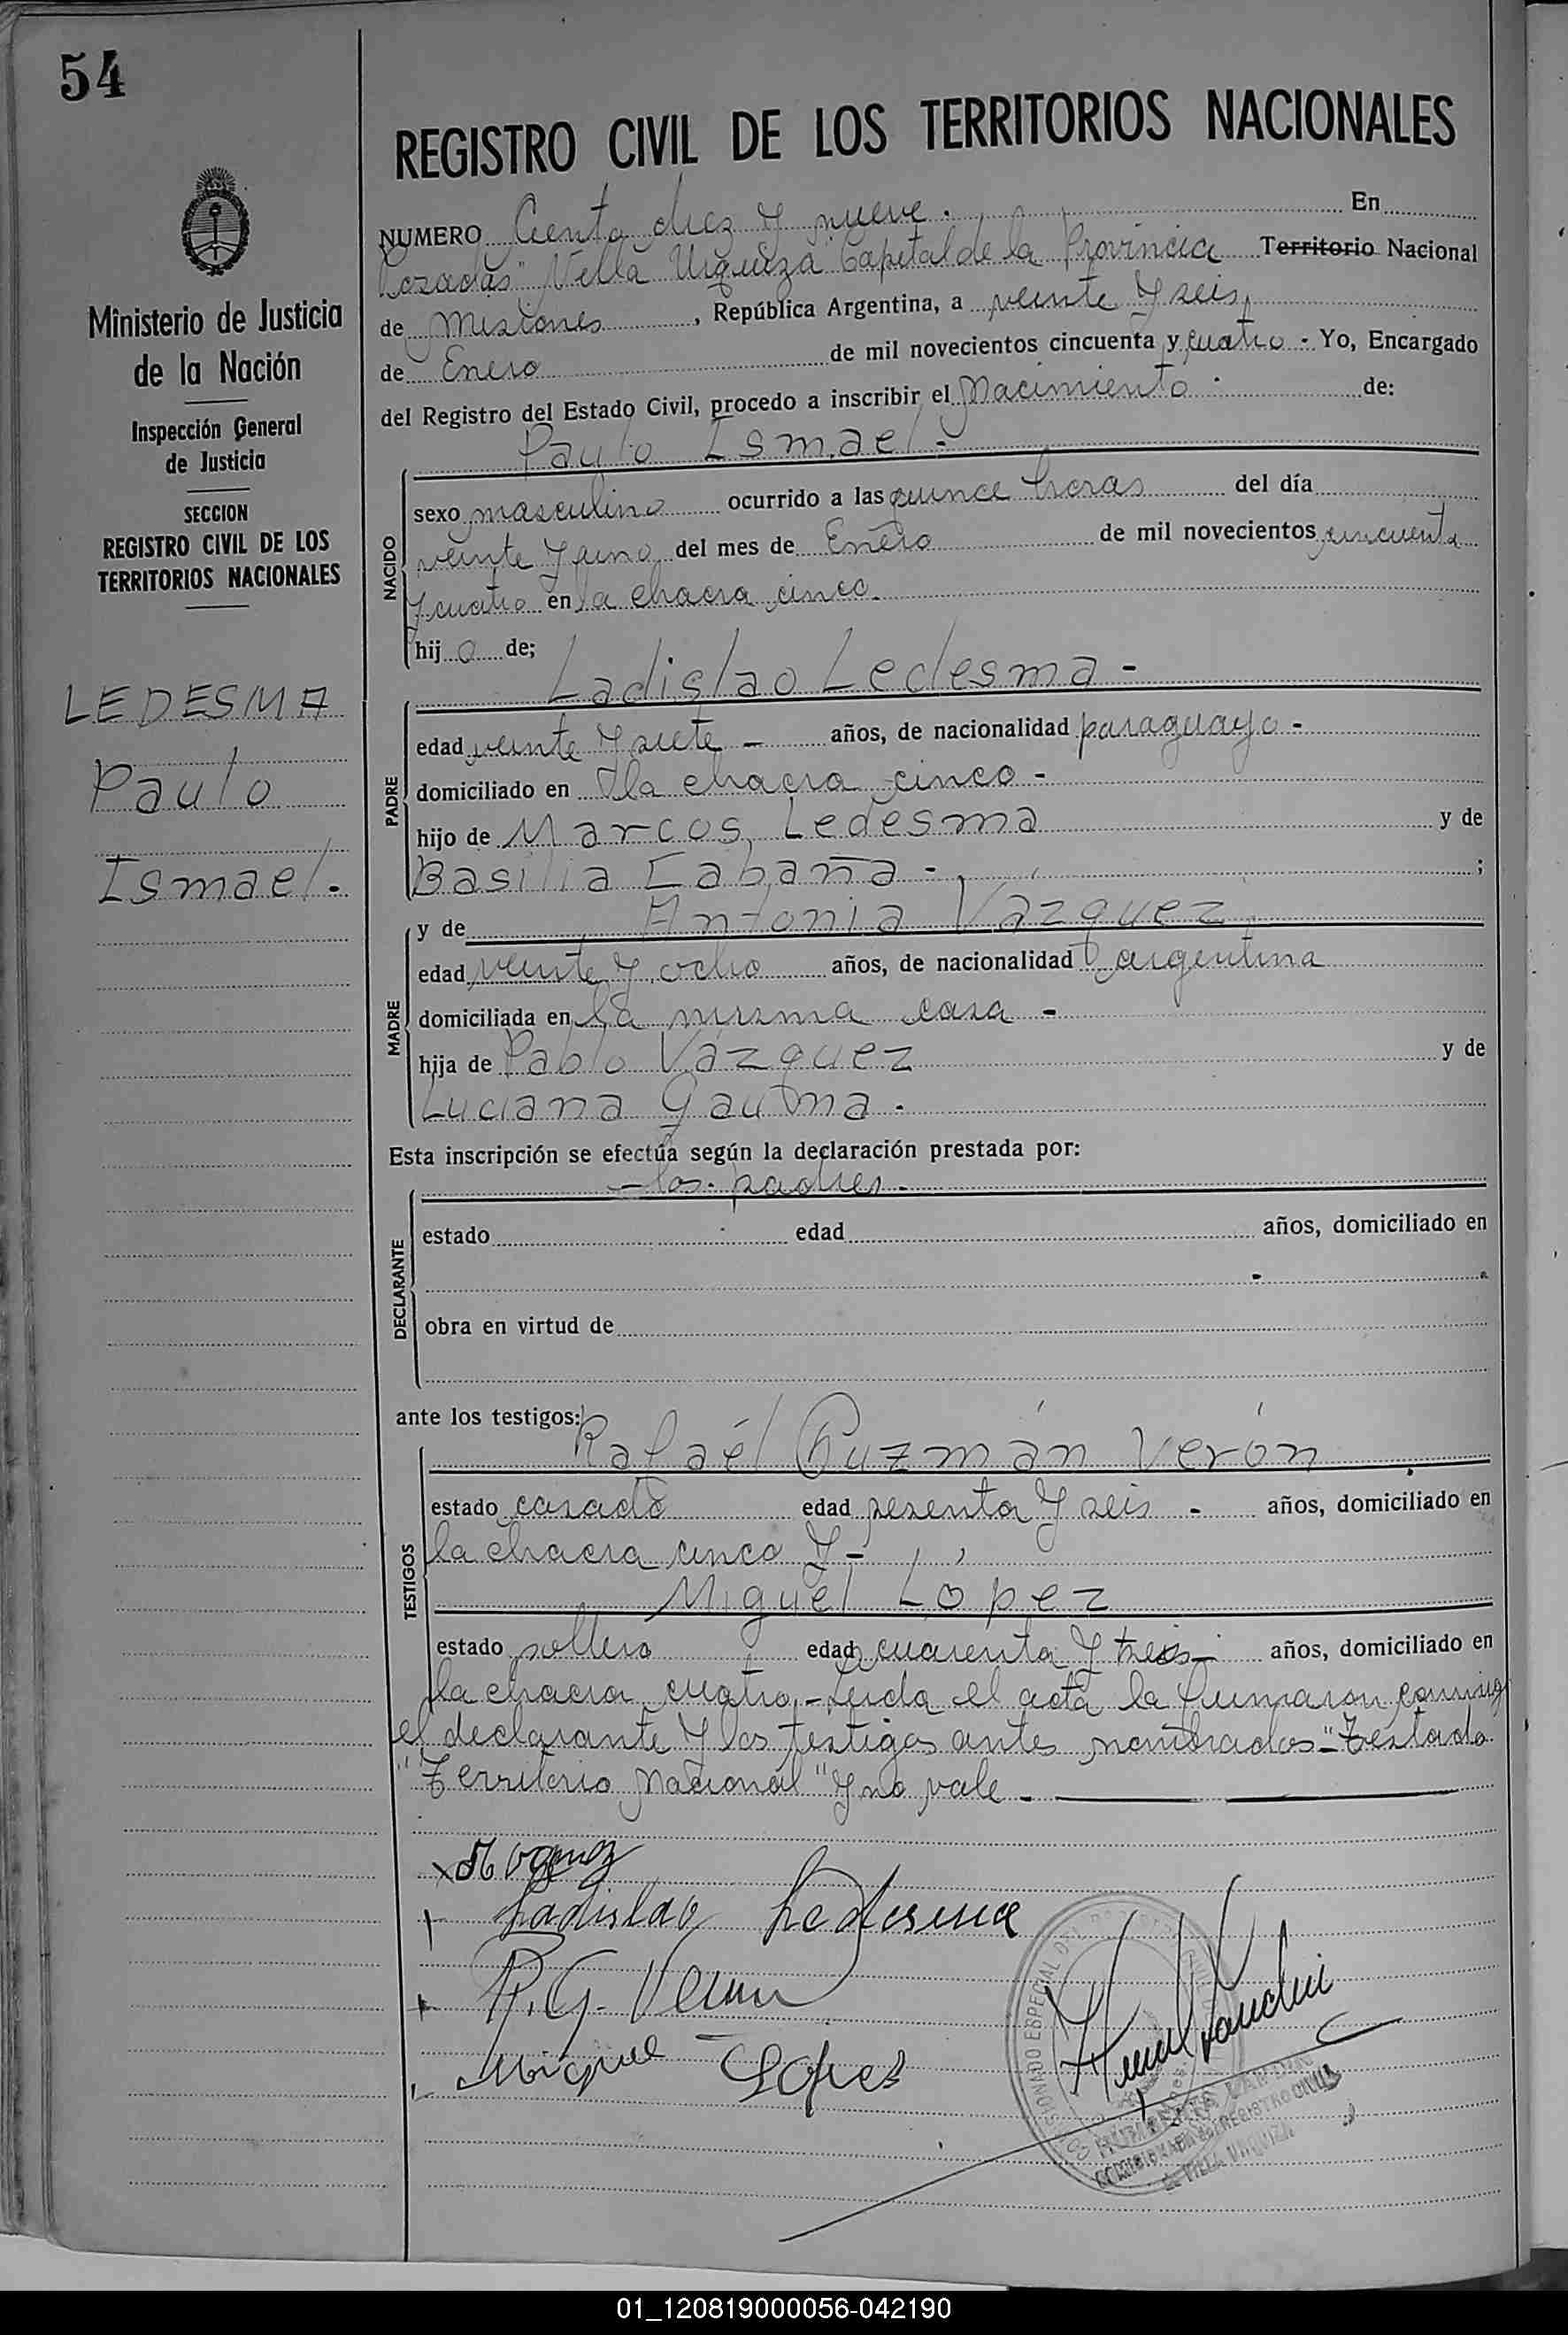 54
Ministerio de Justicia
de la Nación
Inspección General
de Justicia
SECCION
REGISTRO CIVIL DE LOS
TERRITORIOS NACIONALES
LEDESMA
Paulo
Ismael.
REGISTRO CIVIL DE LOS TERRITORIOS NACIONALES
NUMERO Ciento diez y nueve. En
Posadas "Villa Urquiza" Capital de la Provincia Territorio Nacional
de Misiones, República Argentina, a veinte y seis
de Enero de mil novecientos cincuenta y cuatro - Yo, Encargado
del Registro del Estado Civil, procedo a inscribir el Nacimiento de:
Paulo Ismael -
NACIDO
sexo masculino ocurrido a las quince horas del día
veinte y uno del mes de Enero de mil novecientos cincuenta
y cuatro en la chacra cinco.
hijo de;
Ladislao Ledesma -
PADRE
edad veinte y siete - años, de nacionalidad paraguayo -
domiciliado en la chacra cinco -
hijo de Marcos Ledesma y de
Basilia Cabaña - ;
MADRE
y de Antonia Vázquez
edad veinte y ocho años, de nacionalidad argentina
domiciliada en la misma casa -
hija de Pablo Vázquez y de
Luciana Gauna.
Esta inscripción se efectúa según la declaración prestada por:
- los padres -
DECLARANTE
estado edad años, domiciliado en
obra en virtud de
ante los testigos:
Rafaél Guzmán Verón
TESTIGOS
estado casado edad sesenta y seis - años, domiciliado en
la chacra cinco y -
Miguel López
estado soltero edad cuarenta y tres - años, domiciliado en
la chacra cuatro. - Leida el acta la firmaron conmigo
el declarante y los testigos antes nombrados - Testado
"Territorio Nacional" y no vale -
Ladislao Ledesma
R. G. Veron
Miguel Lopez
COMISIONADO DEL REGISTRO CIVIL
de VILLA URQUIZA
01_120819000056-042190